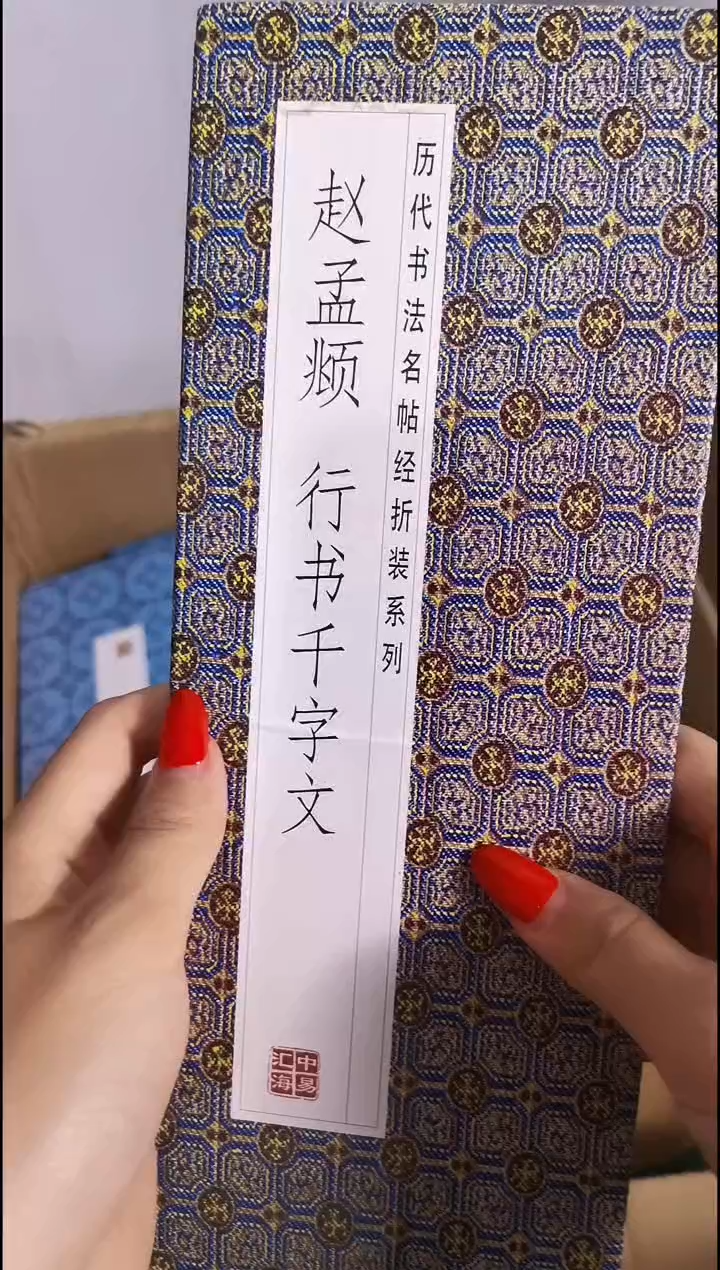 历代书法名帖经折装系列
赵孟𫖯 行书千字文
中易
汇海